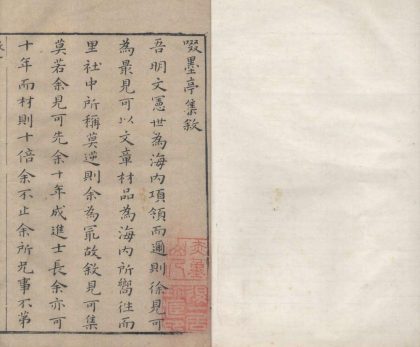 啜墨亭集敘
吾明文憲世為海內項領而邇則徐見可
為最見可以文章材品為海內所嚮往而
里社中所稱莫逆則余為冣故敘見可集
莫若余見可先余十年成進士長余亦可
十年而材則十倍余不止余所兄事不第